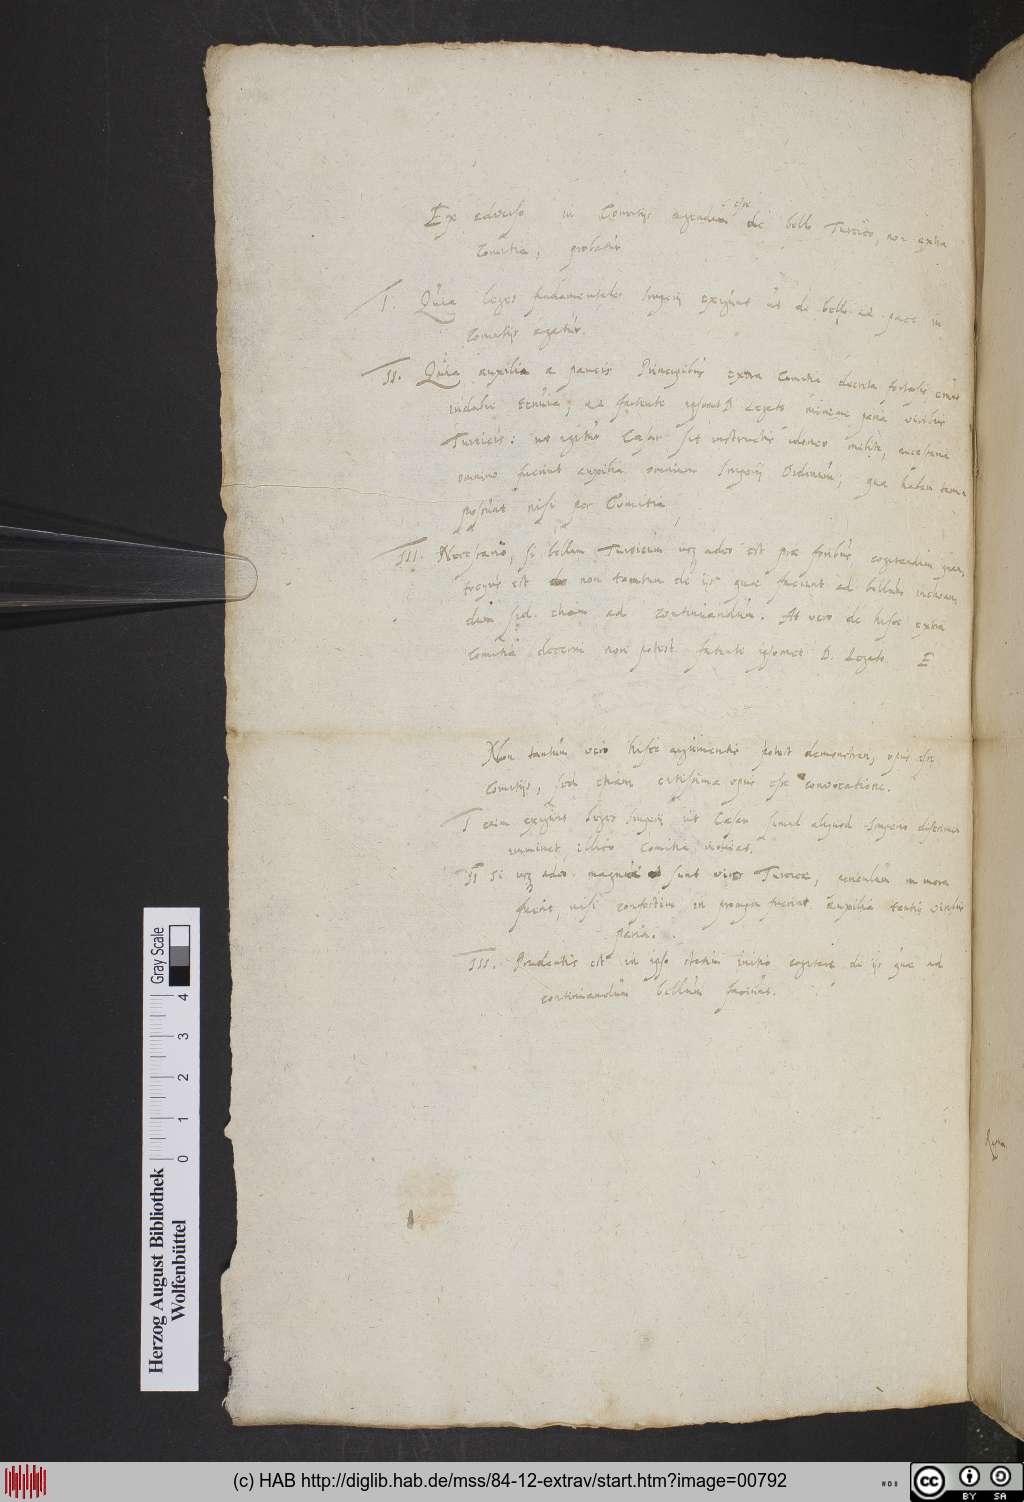 Ex adverso in Comitijs agendum esse de bello Turcico, non extra
Comitia, probatur
I. Quia leges fundamentales Imperij exigunt ut de bello et pace in
Comitijs agatur.
II. Quia auxilia a paucis Principibus extra Comitia decreta
tenuia, ac fatente ipsomet D Legato minime paria viribus
Turcicis: ut igitur Caesar sit instructus idoneo milite, necessaria
omnino fuerint auxilia omnium Imperij Ordinum, quae haberi
possunt nisi per Comitia,
III. Necessario, si bellum Turcicum usq adeo est prae foribus, cogitandum
est non tantum de ijs quae faciunt ad bellum inchoan
dum sed etiam ad continuandum. At vero de hisce extra
Comitia decerni non potest fatente ipsomet D. Legato E
Non tantum vero hisce argumentis potest demonstrari, opus esse
Comitijs, sed etiam citissima opus esse convocatione.
I enim exigunt leges Imperij ut Caesar simul aliquod Imperio discrimen
imminet, illico Comitia indicat.
II Si usq adeo magnae sunt vires Turcicae, periculum in mora
fuerit, nisi confestim in promptu fuerint auxilia tantis viribus
paria.
III. Prudentis est in ipso statim initio cogitare de ijs quae ad
continuandum bellum faciunt.
Herzog August Bibliothek
Wolfenbüttel
0 1 2 3 4
Gray Scale
(c) HAB http://diglib.hab.de/mss/84-12-extrav/start.htm?image=00792
cc BY SA